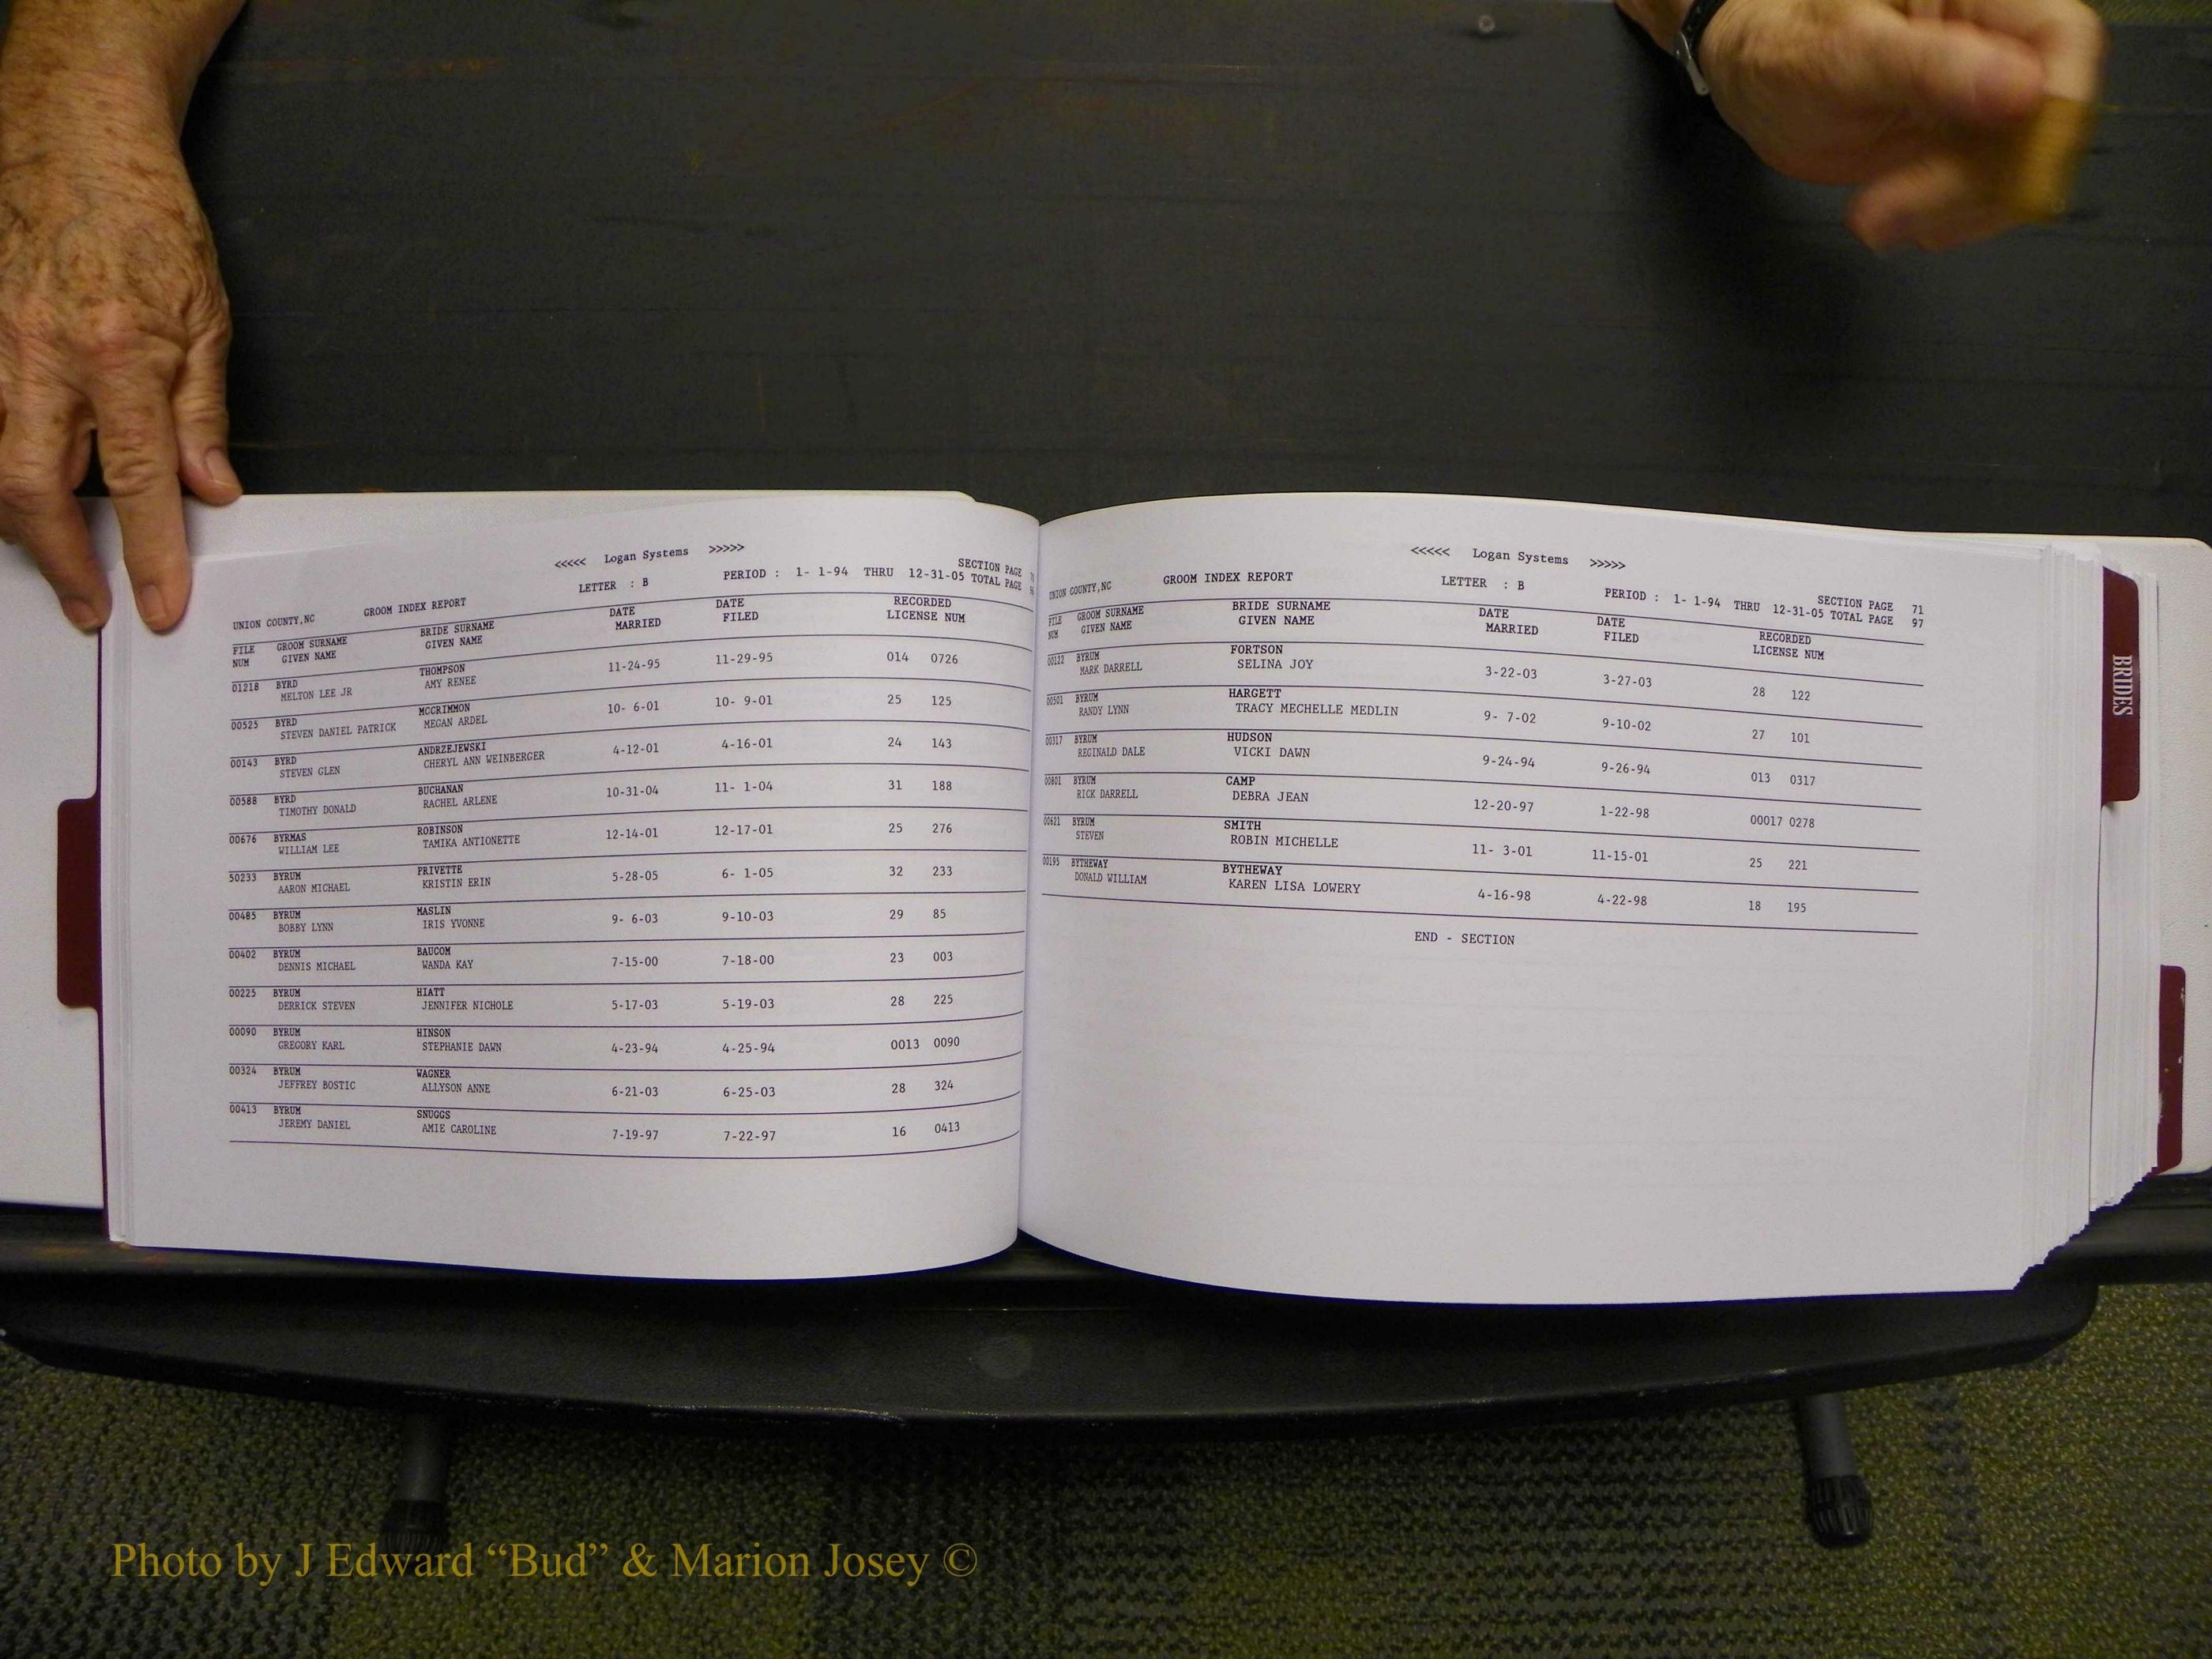 <<<<< Logan Systems >>>>>
UNION COUNTY,NC GROOM INDEX REPORT LETTER : B PERIOD : 1- 1-94 THRU 12-31-05 SECTION PAGE
TOTAL PAGE
FILE GROOM SURNAME BRIDE SURNAME DATE DATE RECORDED
NUM GIVEN NAME GIVEN NAME MARRIED FILED LICENSE NUM
01218 BYRD THOMPSON 11-24-95 11-29-95 014 0726
MELTON LEE JR AMY RENEE
00525 BYRD MCCRIMMON 10- 6-01 10- 9-01 25 125
STEVEN DANIEL PATRICK MEGAN ARDEL
00143 BYRD ANDRZEJEWSKI 4-12-01 4-16-01 24 143
STEVEN GLEN CHERYL ANN WEINBERGER
00588 BYRD BUCHANAN 10-31-04 11- 1-04 31 188
TIMOTHY DONALD RACHEL ARLENE
00676 BYRMAS ROBINSON 12-14-01 12-17-01 25 276
WILLIAM LEE TAMIKA ANTIONETTE
50233 BYRUM PRIVETTE 5-28-05 6- 1-05 32 233
AARON MICHAEL KRISTIN ERIN
00485 BYRUM MASLIN 9- 6-03 9-10-03 29 85
BOBBY LYNN IRIS YVONNE
00402 BYRUM BAUCOM 7-15-00 7-18-00 23 003
DENNIS MICHAEL WANDA KAY
00225 BYRUM HIATT 5-17-03 5-19-03 28 225
DERRICK STEVEN JENNIFER NICHOLE
00090 BYRUM HINSON 4-23-94 4-25-94 0013 0090
GREGORY KARL STEPHANIE DAWN
00324 BYRUM WAGNER 6-21-03 6-25-03 28 324
JEFFREY BOSTIC ALLYSON ANNE
00413 BYRUM SNUGGS 7-19-97 7-22-97 16 0413
JEREMY DANIEL AMIE CAROLINE
<<<<< Logan Systems >>>>>
UNION COUNTY,NC GROOM INDEX REPORT LETTER : B PERIOD : 1- 1-94 THRU 12-31-05 SECTION PAGE 71
TOTAL PAGE 97
FILE GROOM SURNAME BRIDE SURNAME DATE DATE RECORDED
NUM GIVEN NAME GIVEN NAME MARRIED FILED LICENSE NUM
00122 BYRUM FORTSON 3-22-03 3-27-03 28 122
MARK DARRELL SELINA JOY
00501 BYRUM HARGETT 9- 7-02 9-10-02 27 101
RANDY LYNN TRACY MECHELLE MEDLIN
00317 BYRUM HUDSON 9-24-94 9-26-94 013 0317
REGINALD DALE VICKI DAWN
00801 BYRUM CAMP 12-20-97 1-22-98 00017 0278
RICK DARRELL DEBRA JEAN
00621 BYRUM SMITH 11- 3-01 11-15-01 25 221
STEVEN ROBIN MICHELLE
00195 BYTHEWAY BYTHEWAY 4-16-98 4-22-98 18 195
DONALD WILLIAM KAREN LISA LOWERY
END - SECTION
BRIDES
Photo by J Edward “Bud” & Marion Josey ©